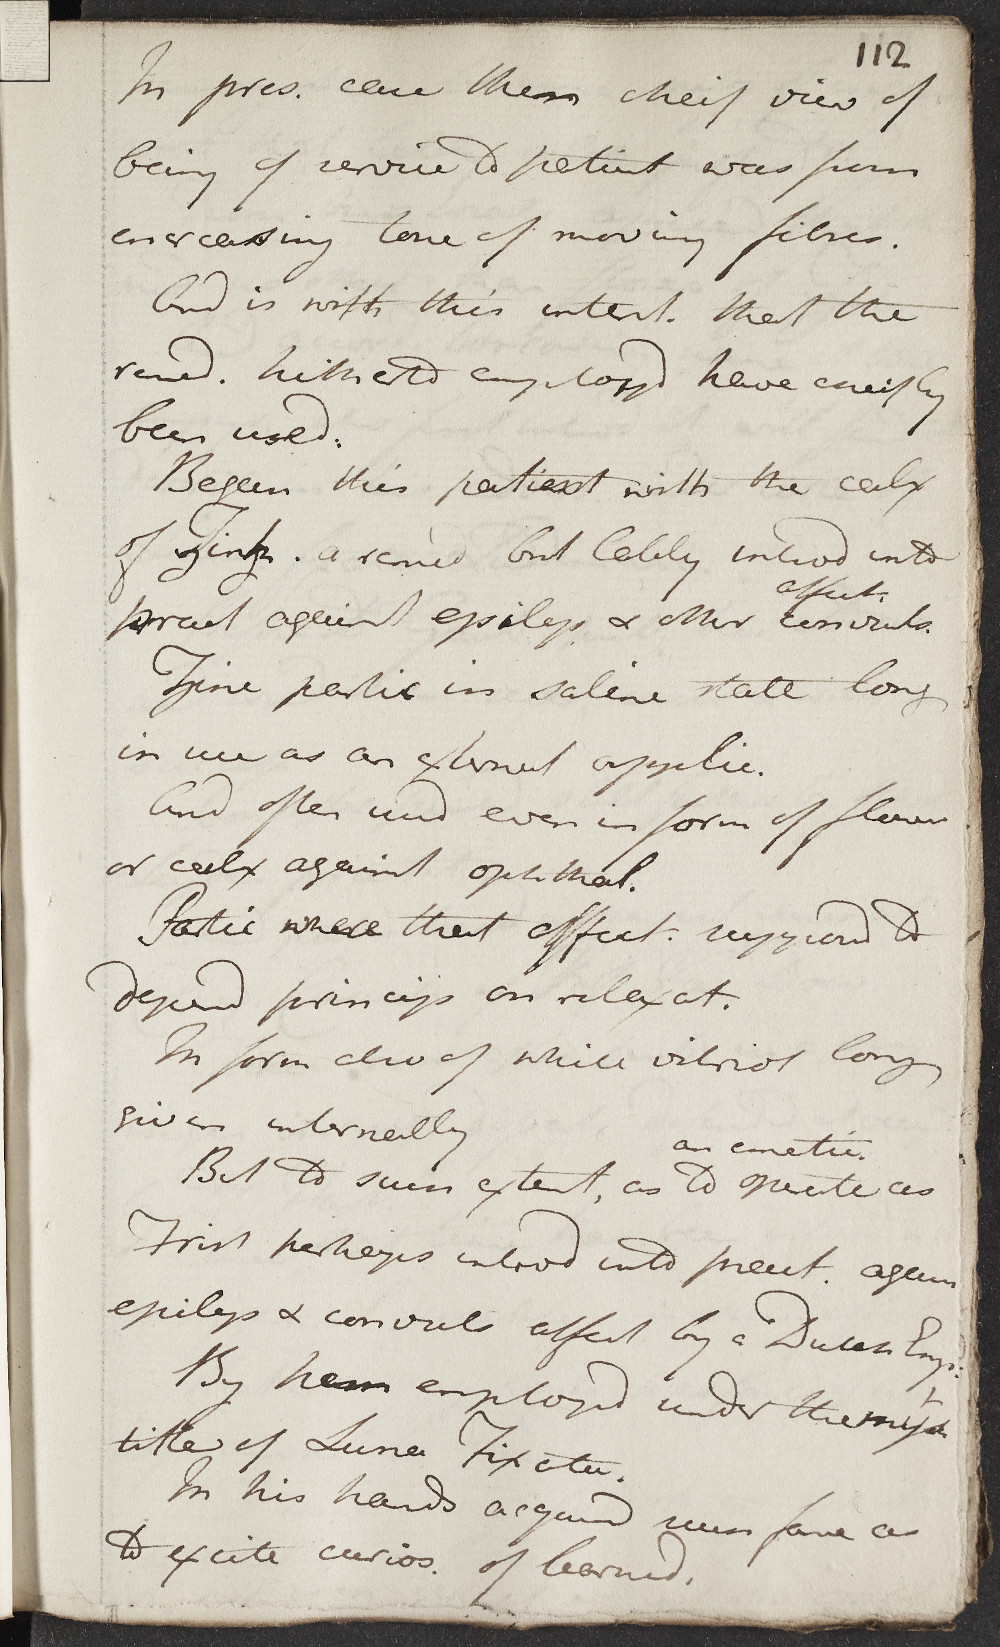 112
In pres. case then cheif view of
being of service to patient was from
encreasing tone of moving fibres.
And is with this intent. that the
remed. hitherto employd have cheifly
been used.
Began this patient with the calx
of Zink. a remed but lately introd into
affect.
pract against epileps & other convuls.
Zinc partic in saline state long
in use as an external applic.
And often used even in form of flowers
or calx against ophthal.
Partic where that affect. supposed to
depend princip on relaxat.
In form also of white vitriol long
given internally
an emetic.
But to such extent, as to operate as
First perhaps introd into pract. again
epileps & convuls affect by a Dutch Emp.
By him employd under the
title of Luna Fixata.
In his hands acquired such fame as
to excite curios. of learned.